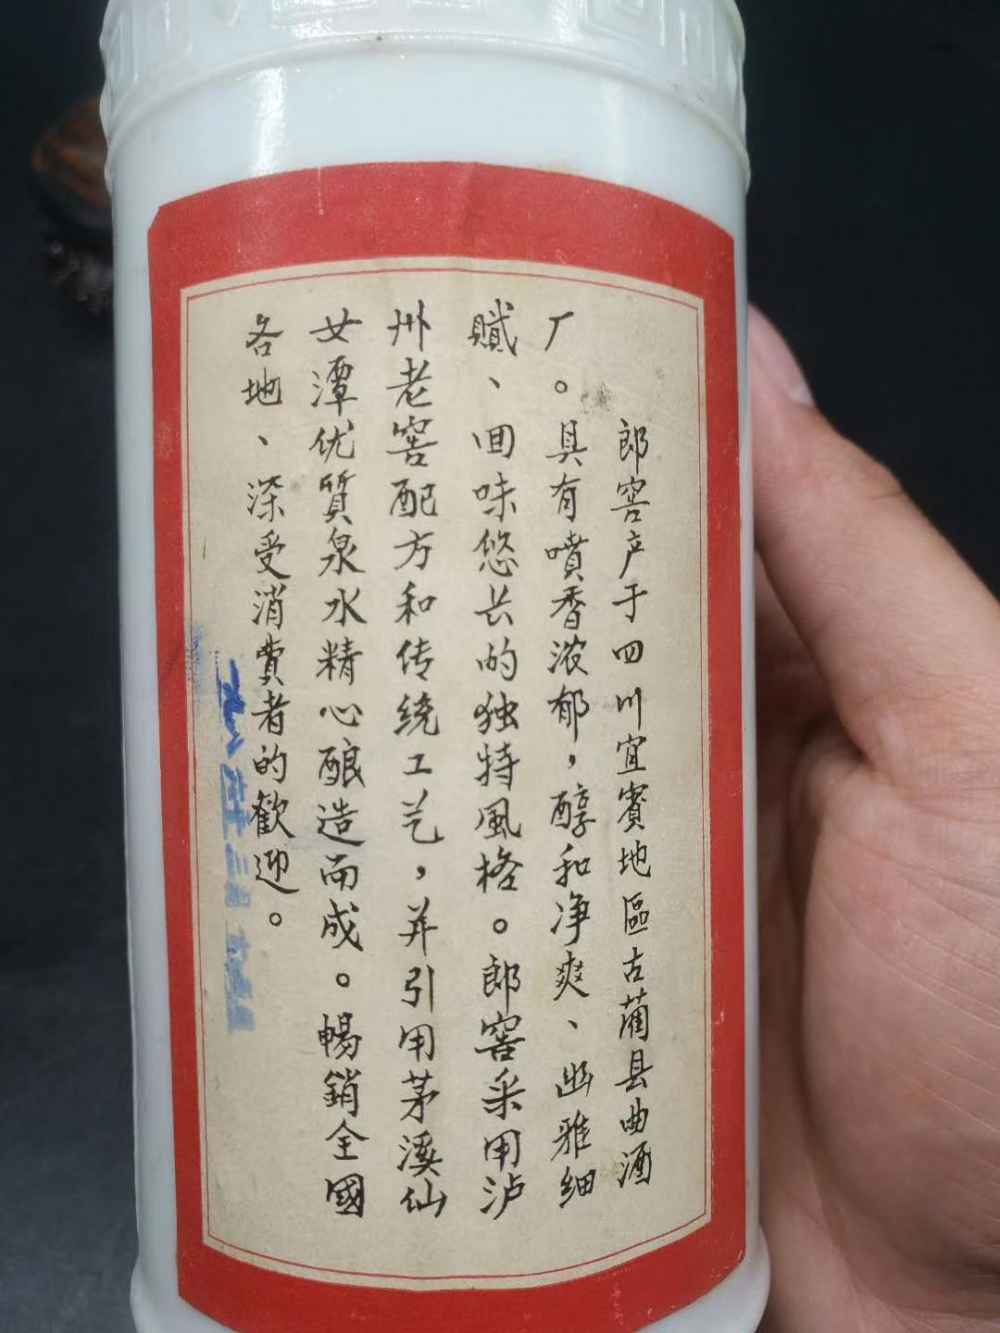 郎窖产于四川宜賓地區古藺县曲酒
厂。具有噴香浓郁，醇和净爽、幽雅细
腻、回味悠长的独特風格。郎窖采用泸
州老窖配方和传统工艺，并引用茅溪仙
女潭优質泉水精心酿造而成。暢銷全國
各地、深受消費者的歡迎。